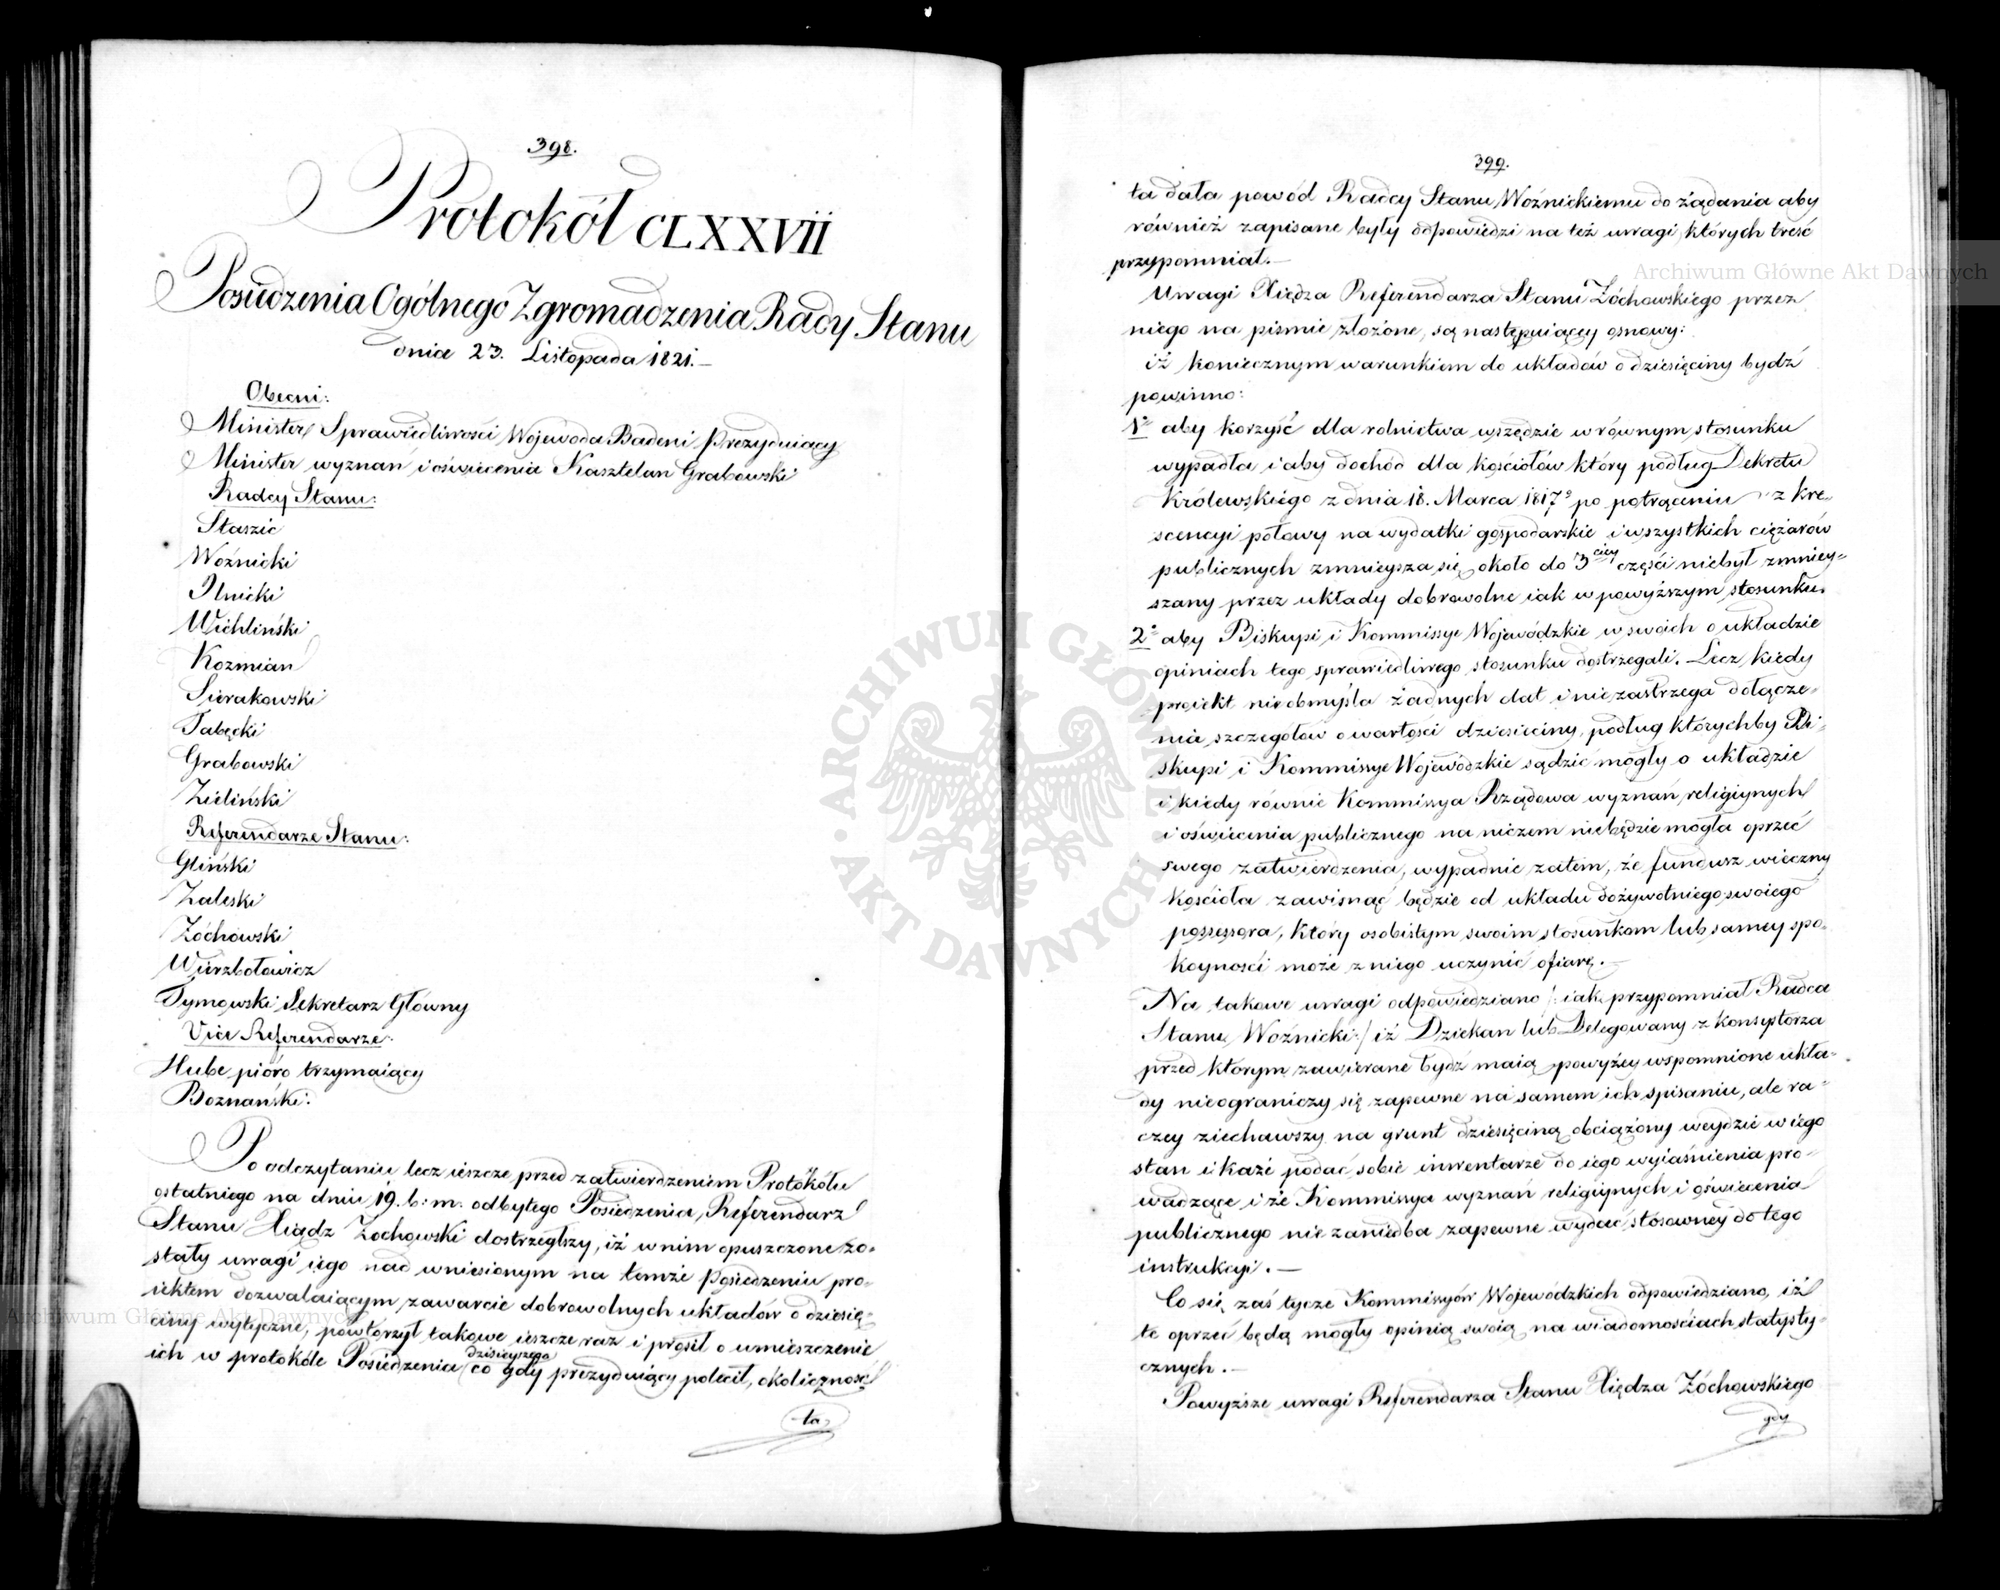 398.
Protokół CLXXVII
Posiedzenia Ogólnego Zgromadzenia Rady Stanu
dnia 23. Listopada 1821.—
Obecni:
Minister Sprawiedliwości Wojewoda Badeni Prezyduiący
Minister wyznań i oświecenia Kasztelan Grabowski
Radcy Stanu:
Staszic
Woźnicki
Ilnicki
Wichliński
Kozmian
Sierakowski
Tabęcki
Grabowski
Zieliński
Referendarze Stanu:
Gliński
Zaleski
Zóchowski
Wierzbołowicz
Tymowski Sekretarz Główny
Vice Referendarze:
Hube pióro trzymaiący
Boznański.
Po odczytaniu lecz ieszcze przed zatwierdzeniem Protokółu
ostatniego na dniu 19. b: m: odbytego Posiedzenia, Referendarz
Stanu Xiądz Zochowski dostrzegłszy, iż w nim opuszczone zo-
stały uwagi iego nad wniesionym na temże Posiedzeniu pro-
iektem dozwalaiącym zawarcie dobrowolnych układów o dziesię-
ciny wytyczne, powtorzył takowe ieszcze raz i prosił o umieszczenie
ich w protokóle Posiedzenia dzisieyszego co gdy prezyduiący polecił, okoliczność
ta
399.
ta dała powód Radcy Stanu Woźnickiemu do żądania aby
również zapisane były odpowiedzi na też uwagi, których treść
przypomniał.—
Uwagi Xiędza Referendarza Stanu Zóchowskiego przez
niego na piśmie złożone, są następuiącey osnowy:
iż koniecznym warunkiem do układów o dziesięciny bydź
powinno:
1o aby korzyść dla rolnictwa wszędzie w równym stosunku
wypadła i aby dochód dla kościołów który podług Dekretu
Królewskiego z dnia 18. Marca 1817o po potrąceniu z kre-
scencyi połowy na wydatki gospodarskie i wszystkich ciężarów
publicznych zmnieysza się około do 3ciey części niebył zmniey-
szany przez układy dobrowolne iak w powyższym stosunku.
2o aby Biskupi i Kommissye Wojewódzkie w swoich o układzie
opiniach tego sprawiedliwego stosunku dostrzegali. Lecz kiedy
proiekt nie obmyśla żadnych dat i nie zastrzega dołącze-
nia szczegółow o wartości dziesięciny, podług którychby Bi-
skupi i Kommissye Wojewódzkie sądzić mogły o układzie
i kiedy równie Kommissya Rządowa wyznań religiynych
i oświecenia publicznego na niczem niebędzie mogła oprzeć
swego zatwierdzenia, wypadnie zatem, że fundusz wieczny
Kościoła zawisnąć będzie od układu dożywotniego swoiego
possessora, który osobistym swoim stosunkom lub samey spo-
koyności może z niego uczynić ofiarę.—
Na takowe uwagi odpowiedziano /: iak przypomniał Radca
Stanu Woźnicki:/ iż Dziekan lub Delegowany z Konsystorza
przed którym zawierane bydź maią powyżey wspomnione ukła-
dy nieograniczy się zapewne na samem ich spisaniu, ale ra-
czey ziechawszy na grunt dziesięciną obciążony weydzie w iego
stan i każe podać sobie inwentarze do iego wyiaśnienia pro-
wadzące i że Kommissya wyznań religiynych i oświecenia
publicznego nie zaniedba zapewne wydać stosowney do tego
instrukcyi.—
Co się zaś tycze Kommissyów Wojewódzkich odpowiedziano, iż
te oprzeć będą mogły opinią swoią na wiadomościach statysty-
cznych.—
Powyższe uwagi Referendarza Stanu Xiędza Zóchowskiego
gdy
Archiwum Główne Akt Dawnych
Archiwum Główne Akt Dawnych
ARCHIWUM GŁÓWNE AKT DAWNYCH